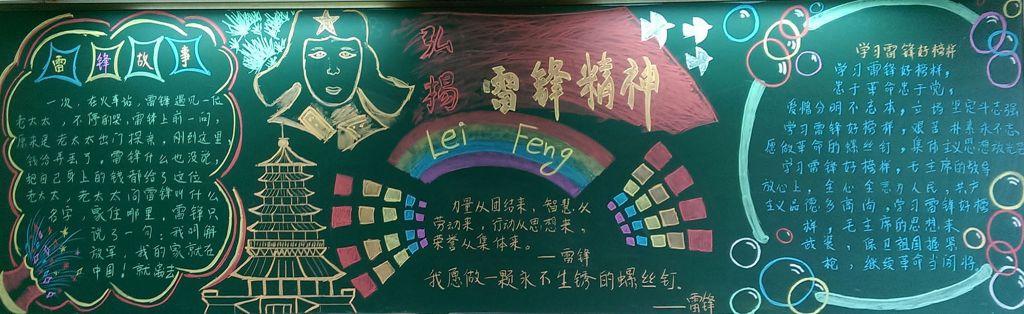 雷锋故事
一次，在火车站，雷锋遇见一位
老太太，不停的哭，雷锋上前一问，
原来是老太太出门探亲，刚到这里
钱给弄丢了，雷锋什么也没说，
把自己身上的钱都给了这位
老太太，老太太问雷锋叫什么
名字，家住哪里，雷锋只
说了一句：我叫解
放军，我的家就在
中国！就
弘扬
雷锋精神
Lei Feng
力量从团结来，智慧从
劳动来，行动从思想来，
荣誉从集体来。
——雷锋
我愿做一颗永不生锈的螺丝钉。
——雷锋
学习雷锋好榜样
学习雷锋好榜样，
忠于革命忠于党，
爱憎分明不忘本，立场坚定斗志强
学习雷锋好榜样，艰苦朴素永不忘，
愿做革命的螺丝钉，集体主义思想放光芒
学习雷锋好榜样，毛主席的教导
放心上，全心全意为人民，共产
主义品德多高尚，学习雷锋好榜
样，毛主席的思想来
武装，保卫祖国握紧
枪，继续革命当闯将。